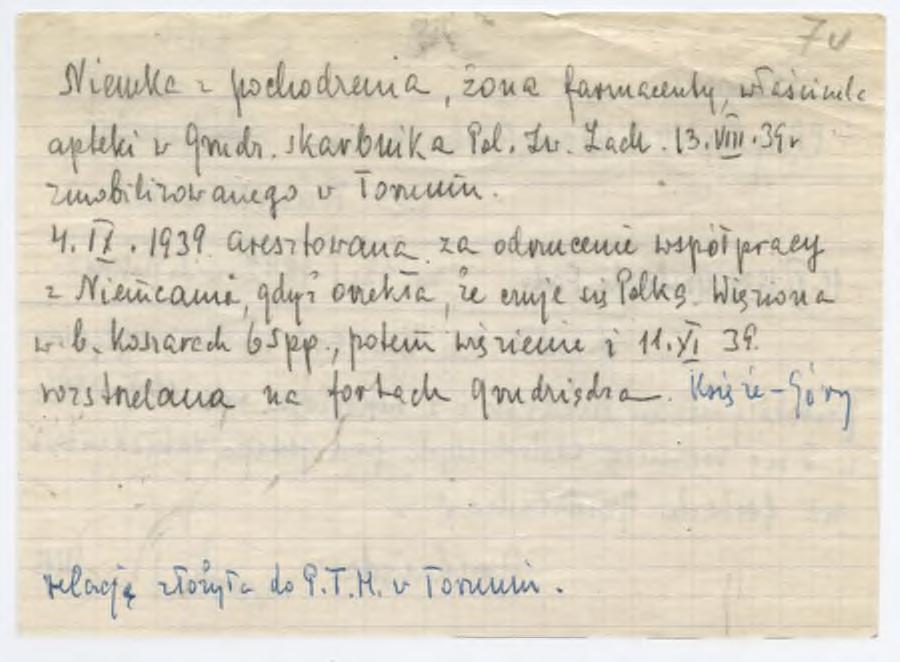 7v
Niemka z pochodzenia, żona farmaceuty, właściciela
apteki w Grudz. skarbnika Pol. Zw. Zach. 13.VIII.39 r
zmobilizowanego w Toruniu.
4. IX. 1939 aresztowana za odrzucenie współpracy
z Niemcami, gdyż orzekła, że czuje się Polką. Więziona
w b. koszarach 65pp., potem więzienie i 11.XI 39.
rozstrzelana na fortach Grudziądza. Księże-Góry
relację złożyła do P.T.H. w Toruniu.